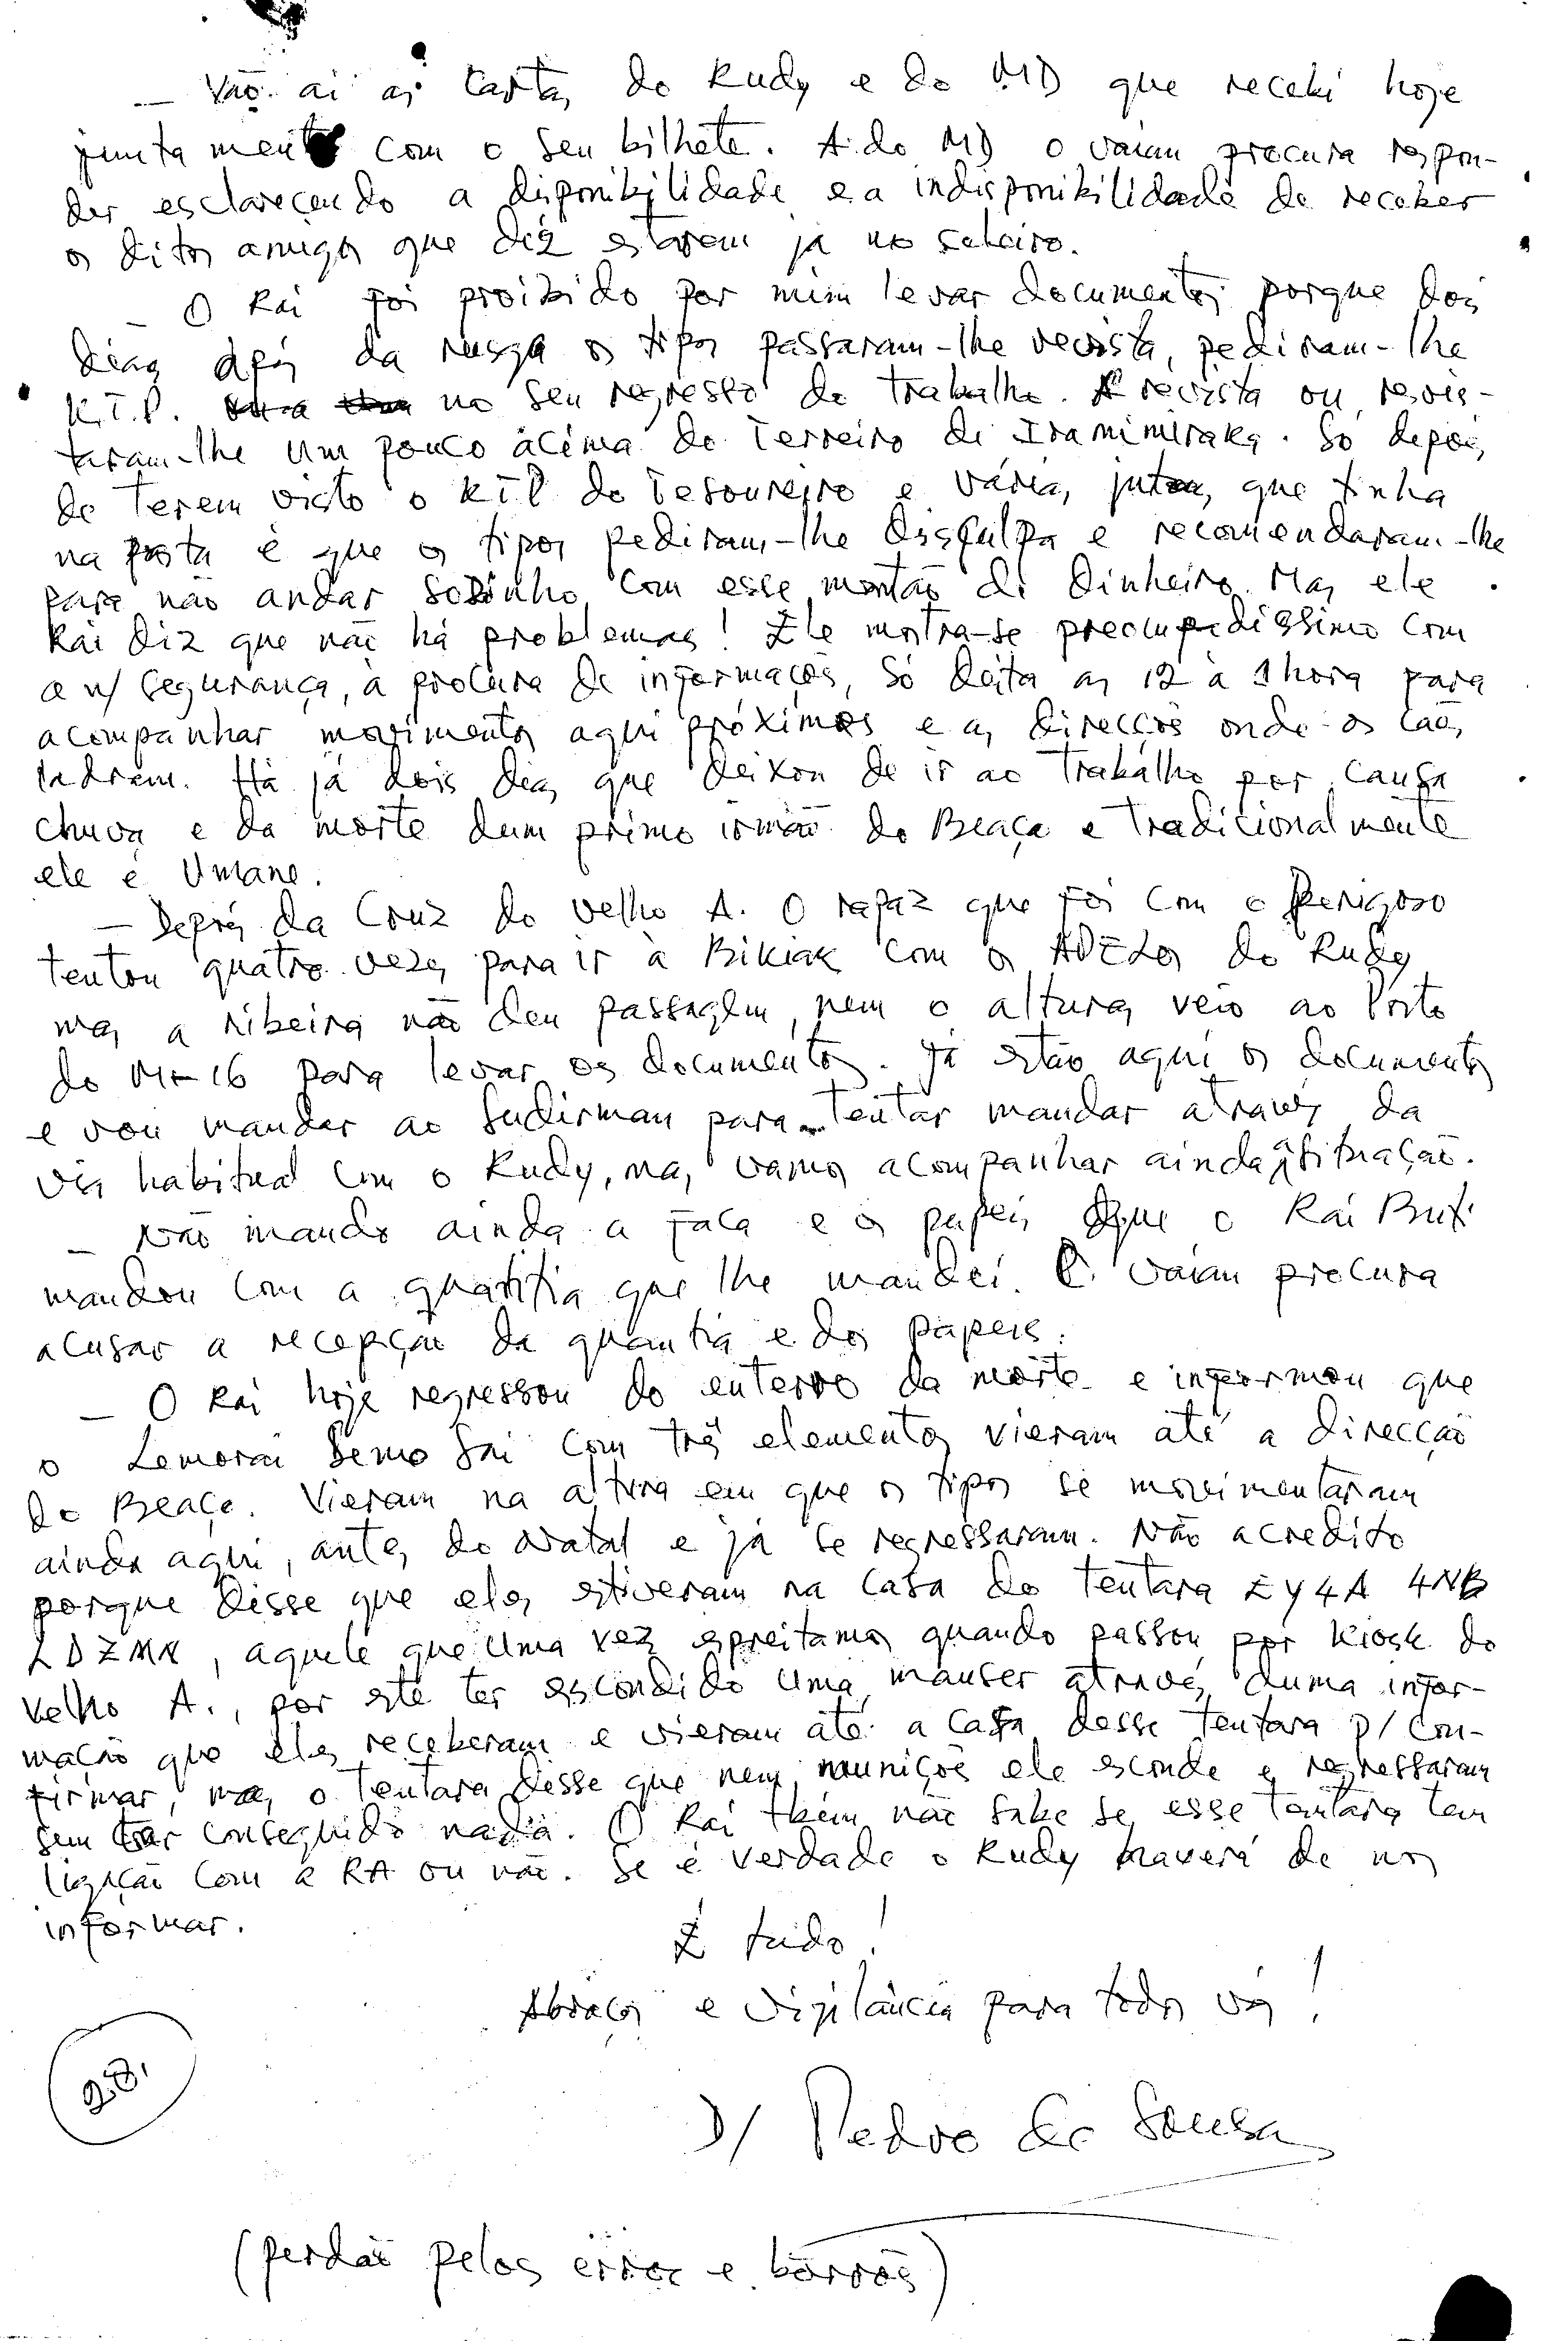 — Vão aí as cartas do Rudy e do MD que recebi hoje
juntamente com o seu bilhete. A do MD o vaian procura respon-
der esclarecendo a disponibilidade e a indisponibilidade de receber
os ditos amigos que diz estarem já no celeiro.
— O Rai foi proibido por mim levar documentos porque dois
dias após da rusga os tipos passaram-lhe revista, pediram-lhe
K.T.P. no seu regresso do trabalho. A revista ou revis-
taram-lhe um pouco acima do Terreiro de Iramimiraka. Só depois
de terem visto o KTP do Tesoureiro e várias juta, que tinha
na pasta é que os tipos pediram-lhe disculpa e recomendaram-lhe
para não andar sozinho com esse montão de dinheiro. Mas ele
Rai diz que não há problemas! Ele mostra-se preocupadissimo com
a n/ segurança, à procura de informações, só deita as 12 à 1 hora para
acompanhar movimentos aqui próximos e as direcções onde os cães
ladram. Há já dois dias que deixou de ir ao trabalho por causa
chuva e da morte dum primo irmão do Beaça e tradicionalmente
ele é Umane.
— Depois da Cruz do velho A. O rapaz que foi com o Perigoso
tentou quatro vezes para ir à Bikiak com os do Rudy
mas a ribeira não deu passagem, nem o altura veio ao Porto
do M-16 para levar os documentos. Já estão aqui os documentos
e vou mandar ao Sudirman para tentar mandar através da
via habitual com o Rudy, mas vamos acompanhar ainda a situação.
— Não mando ainda a faca e os papeis que o Rai Buti
mandou com a quantia que lhe mandei. O vaian procura
acusar a recepção da quantia e dos papeis.
— O Rai hoje regressou do enterro da morte e informou que
o Lemorai Bemo Sai com três elementos vieram até a direcção
do Beaça. Vieram na altura em que os tipos se movimentaram
ainda aqui, antes do Natal e já se regressaram. Não acredito
porque disse que eles estiveram na casa do tentara EY4A 4NB
LDZMN, aquele que uma vez espreitamos quando passou por Kiosk do
velho A., por este ter escondido uma mauser através duma infor-
mação que eles receberam e vieram até a casa desse tentara p/ con-
firmar, mas o tentara disse que nem munições ele esconde e regressaram
sem ter conseguido nada. O Rai tbém não sabe se esse tentara tem
ligação com a RA ou não. Se é verdade o Rudy haverá de nos
informar.
É tudo!
Abraços e vigilância para todos vós!
D/ Pedro de Sousa
28.
(perdão pelos erros e borrões)